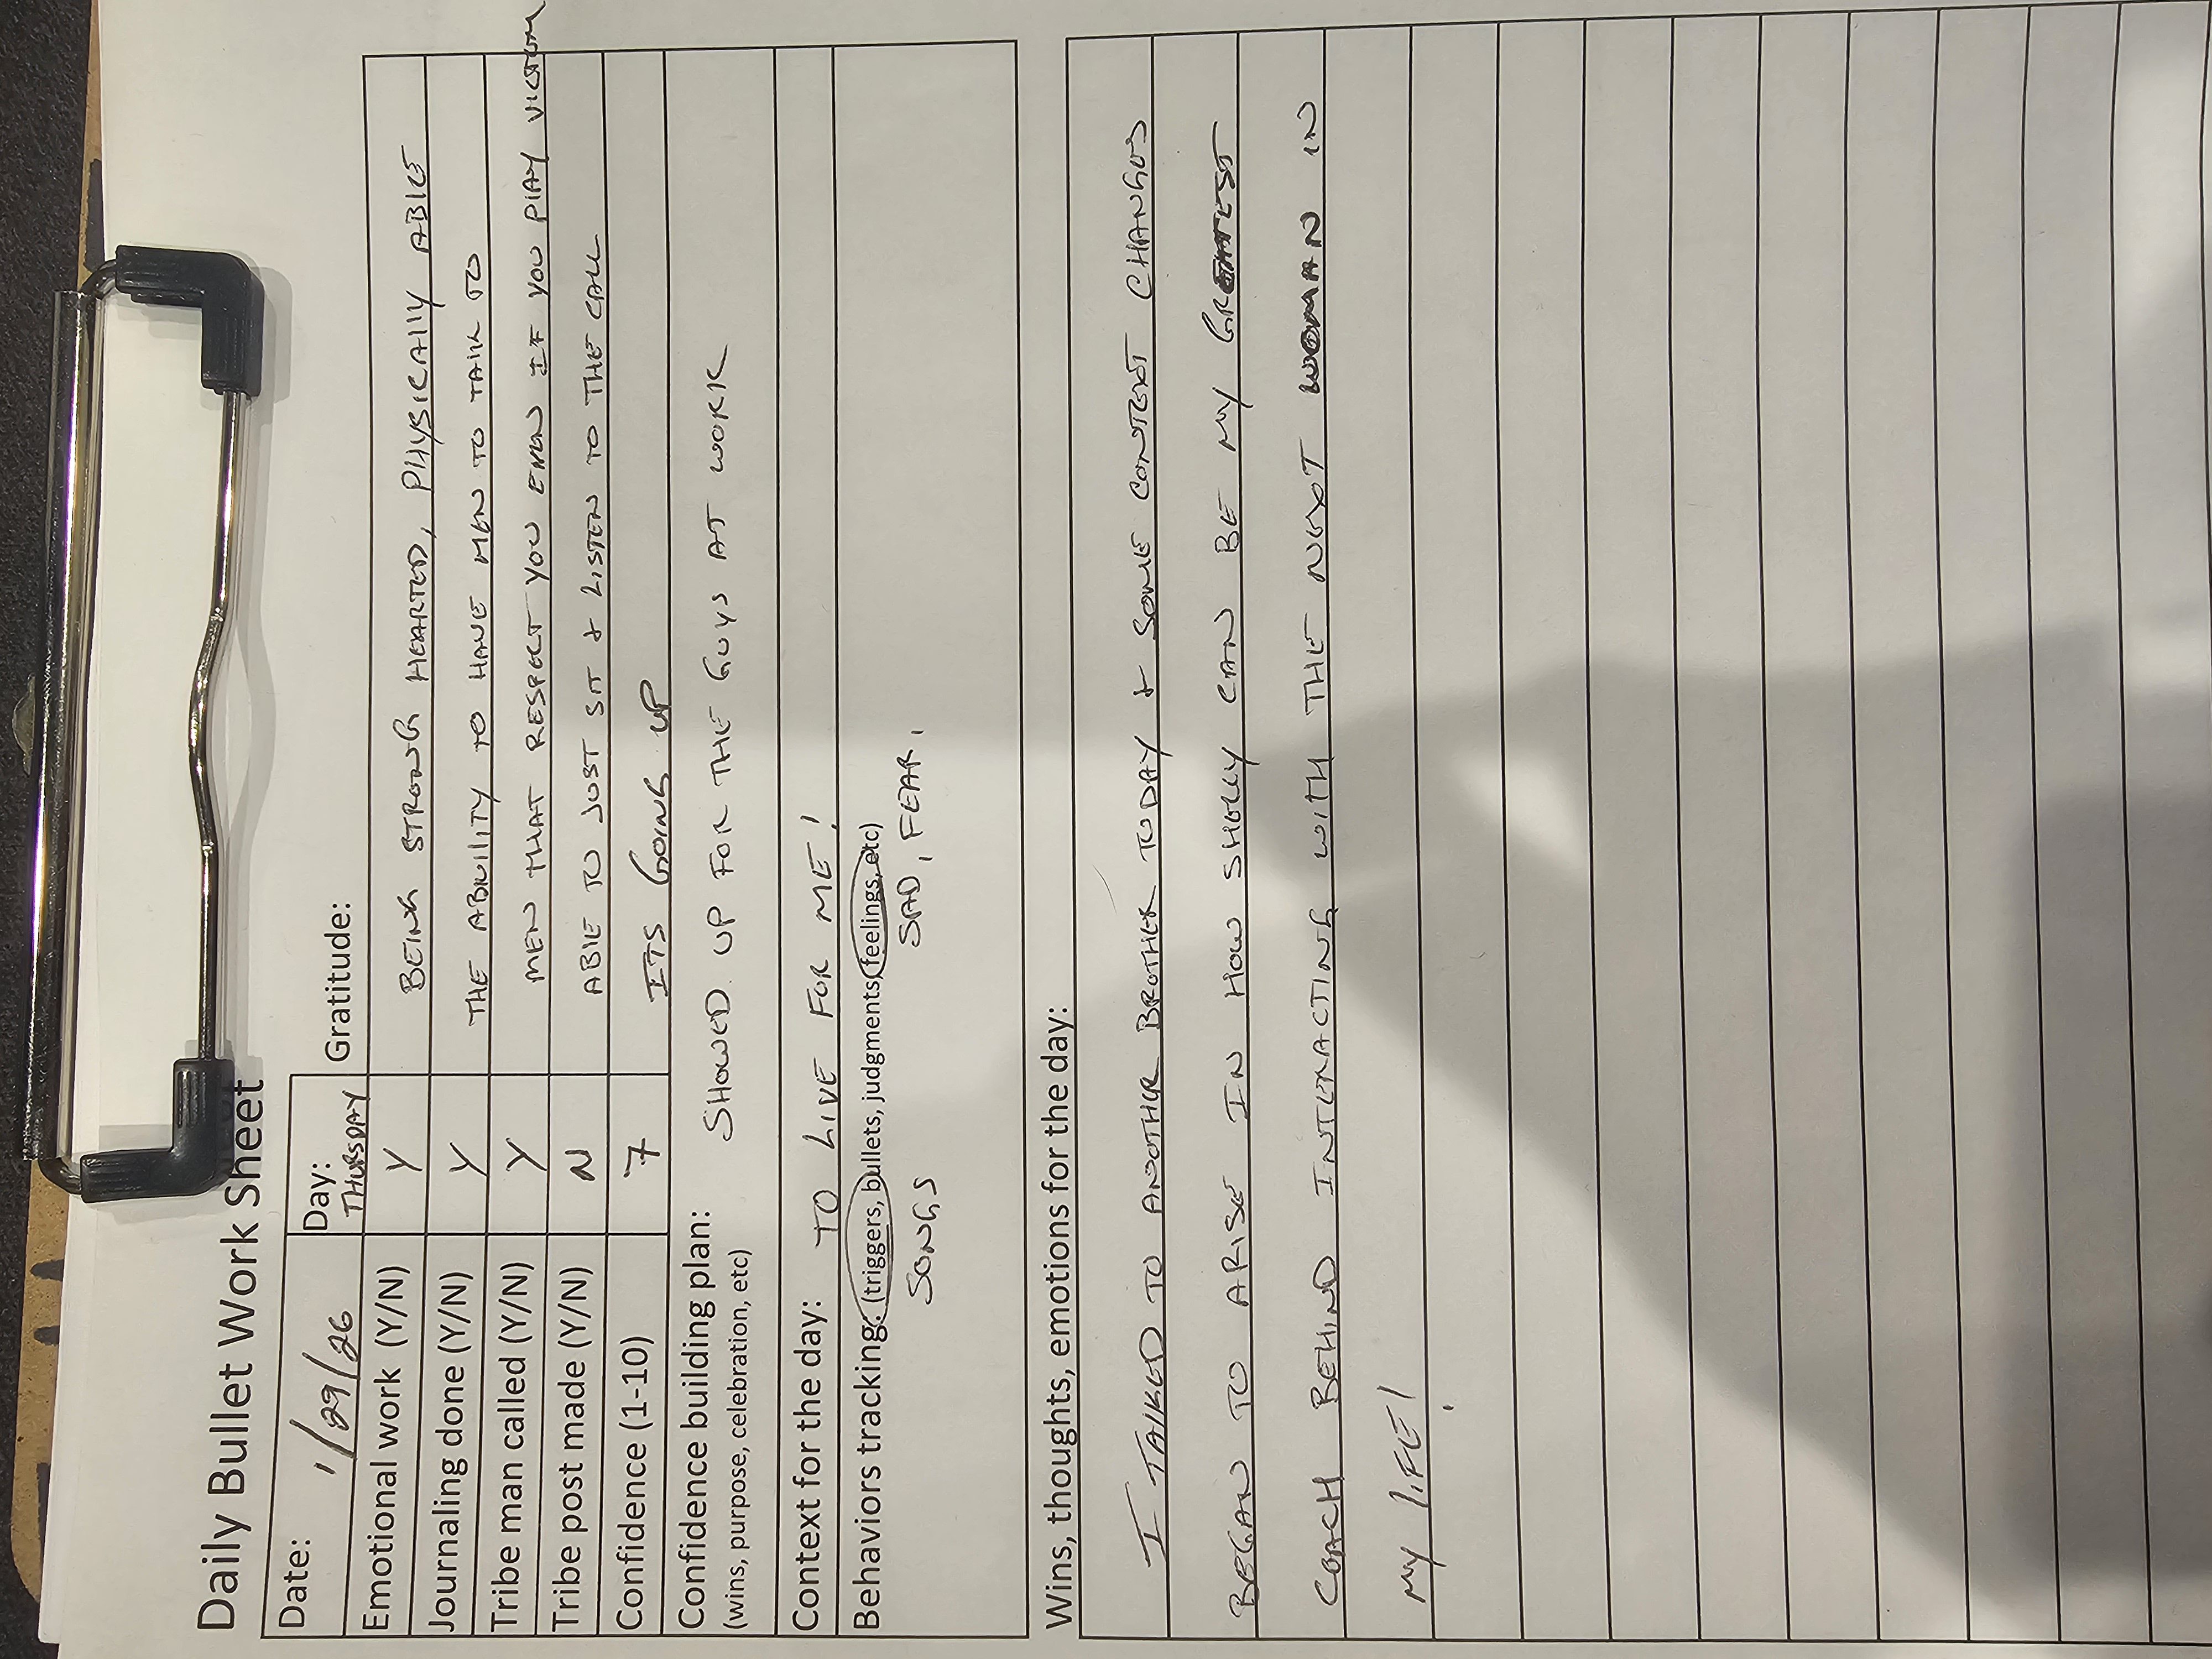 Daily Bullet Work Sheet
Date: 1/29/26 Day: THURSDAY Gratitude:
Emotional work (Y/N) Y BEING STRONG HEARTED, PHYSICALLY ABLE
Journaling done (Y/N) Y THE ABILITY TO HAVE MEN TO TALK TO
Tribe man called (Y/N) Y MEN THAT RESPECT YOU EVEN IF YOU PLAY VICTIM
Tribe post made (Y/N) N ABLE TO JUST SIT + LISTEN TO THE CALL
Confidence (1-10) 7 ITS GOING UP
Confidence building plan: SHOWED UP FOR THE GUYS AT WORK
(wins, purpose, celebration, etc)
Context for the day: TO LIVE FOR ME!
Behaviors tracking: (triggers, bullets, judgments, feelings, etc)
SONGS SAD, FEAR,
Wins, thoughts, emotions for the day:
I TALKED TO ANOTHER BROTHER TODAY + SOME CONTEXT CHANGES
BEGAN TO ARISE IN HOW SHELLY CAN BE MY GREATEST
COACH BEHIND INTERACTING WITH THE NEXT WOMAN IN
MY LIFE!